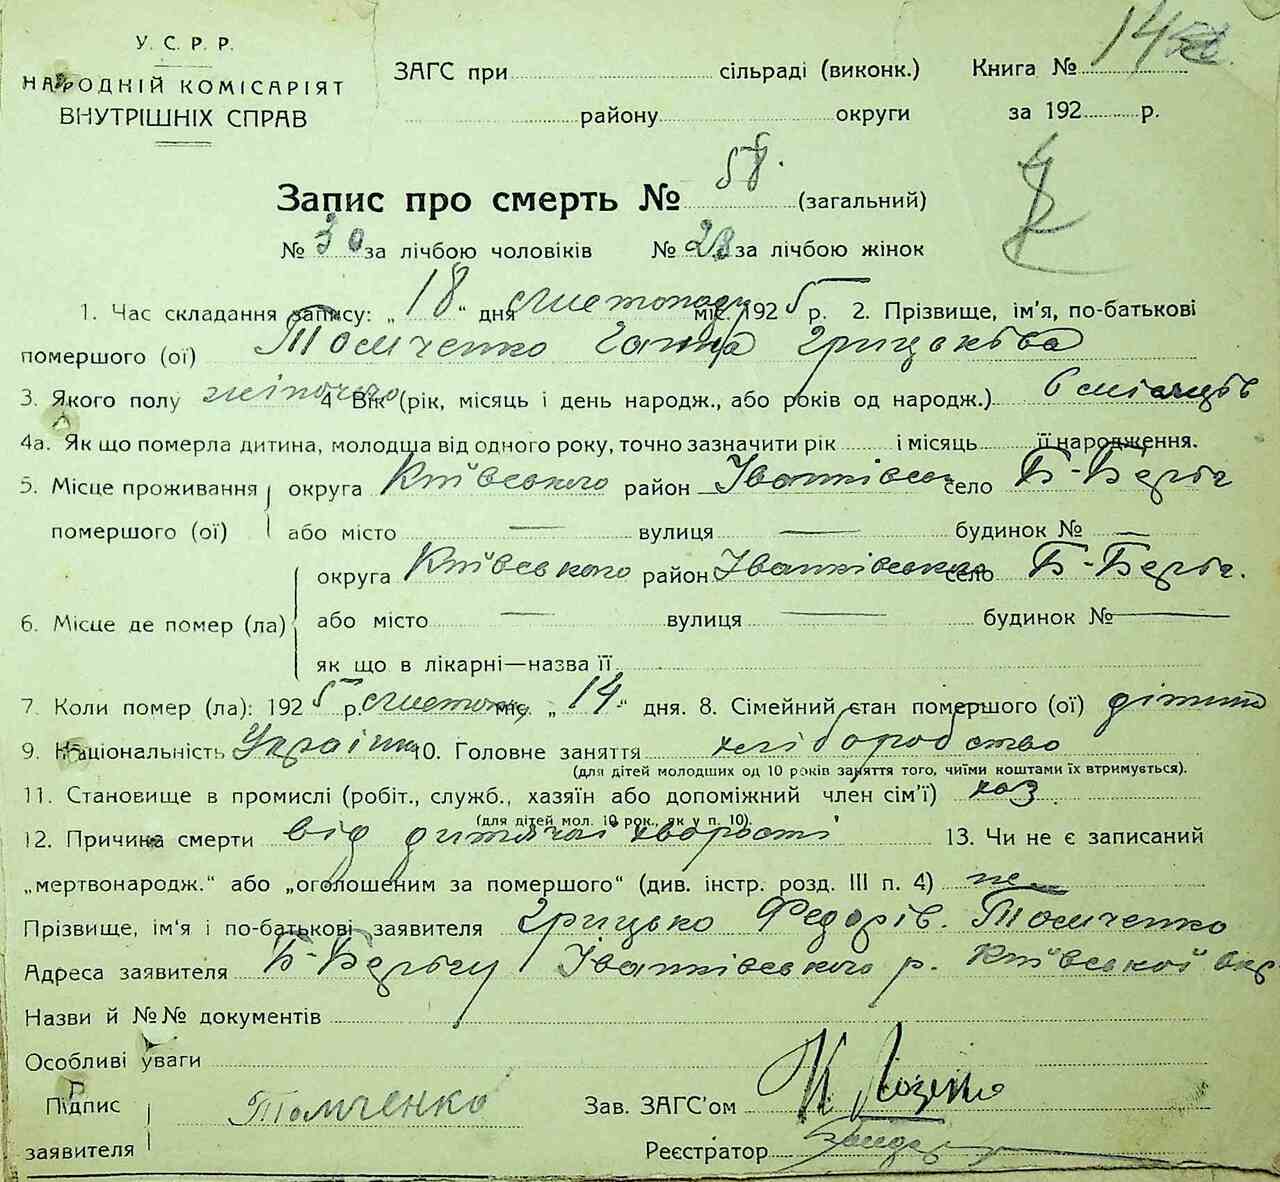 У. С. Р. Р.
НАРОДНІЙ КОМІСАРІЯТ
ВНУТРІШНІХ СПРАВ
ЗАГС при сільраді (виконк.)
району округи
Книга № 14
за 192 р.
Запис про смерть № 58. (загальний)
№ 30 за лічбою чоловіків № 28 за лічбою жінок
1. Час складання запису: „18“ дня листопаду міс. 1925 р. 2. Прізвище, ім'я, по-батькові
помершого (ої) Томченко Ганна Грицькова
3. Якого полу жіночого 4 Вік (рік, місяць і день народж., або років од народж.) 6 місяців
4а. Як що померла дитина, молодша від одного року, точно зазначити рік і місяць її народження.
5. Місце проживання округа Київського район Іванківськ село
помершого (ої) або місто — вулиця — будинок № —
округа Київського район Іванківського село
6. Місце де помер (ла) або місто — вулиця — будинок № —
як що в лікарні—назва її
7. Коли помер (ла): 1925 р. листопаду міс. „14“ дня. 8. Сімейний стан помершого (ої) дитина
9. Національність Україн. 10. Головне заняття хліборобство
(для дітей молодших од 10 років заняття того, чиїми коштами їх втримується).
11. Становище в промислі (робіт., служб., хазяїн або допоміжний член сім'ї) хаз
(для дітей мол. 10 рок., як у п. 10).
12. Причина смерти від дитячої хворости 13. Чи не є записаний
„мертвонародж.“ або „оголошеним за помершого“ (див. інстр. розд. III п. 4) не
Прізвище, ім'я і по-батькові заявителя Грицько Федорів. Томченко
Адреса заявителя Іванківського р. Київської окр
Назви й №№ документів
Особливі уваги
Підпис
заявителя Томченко
Зав. ЗАГС'ом
Реєстратор